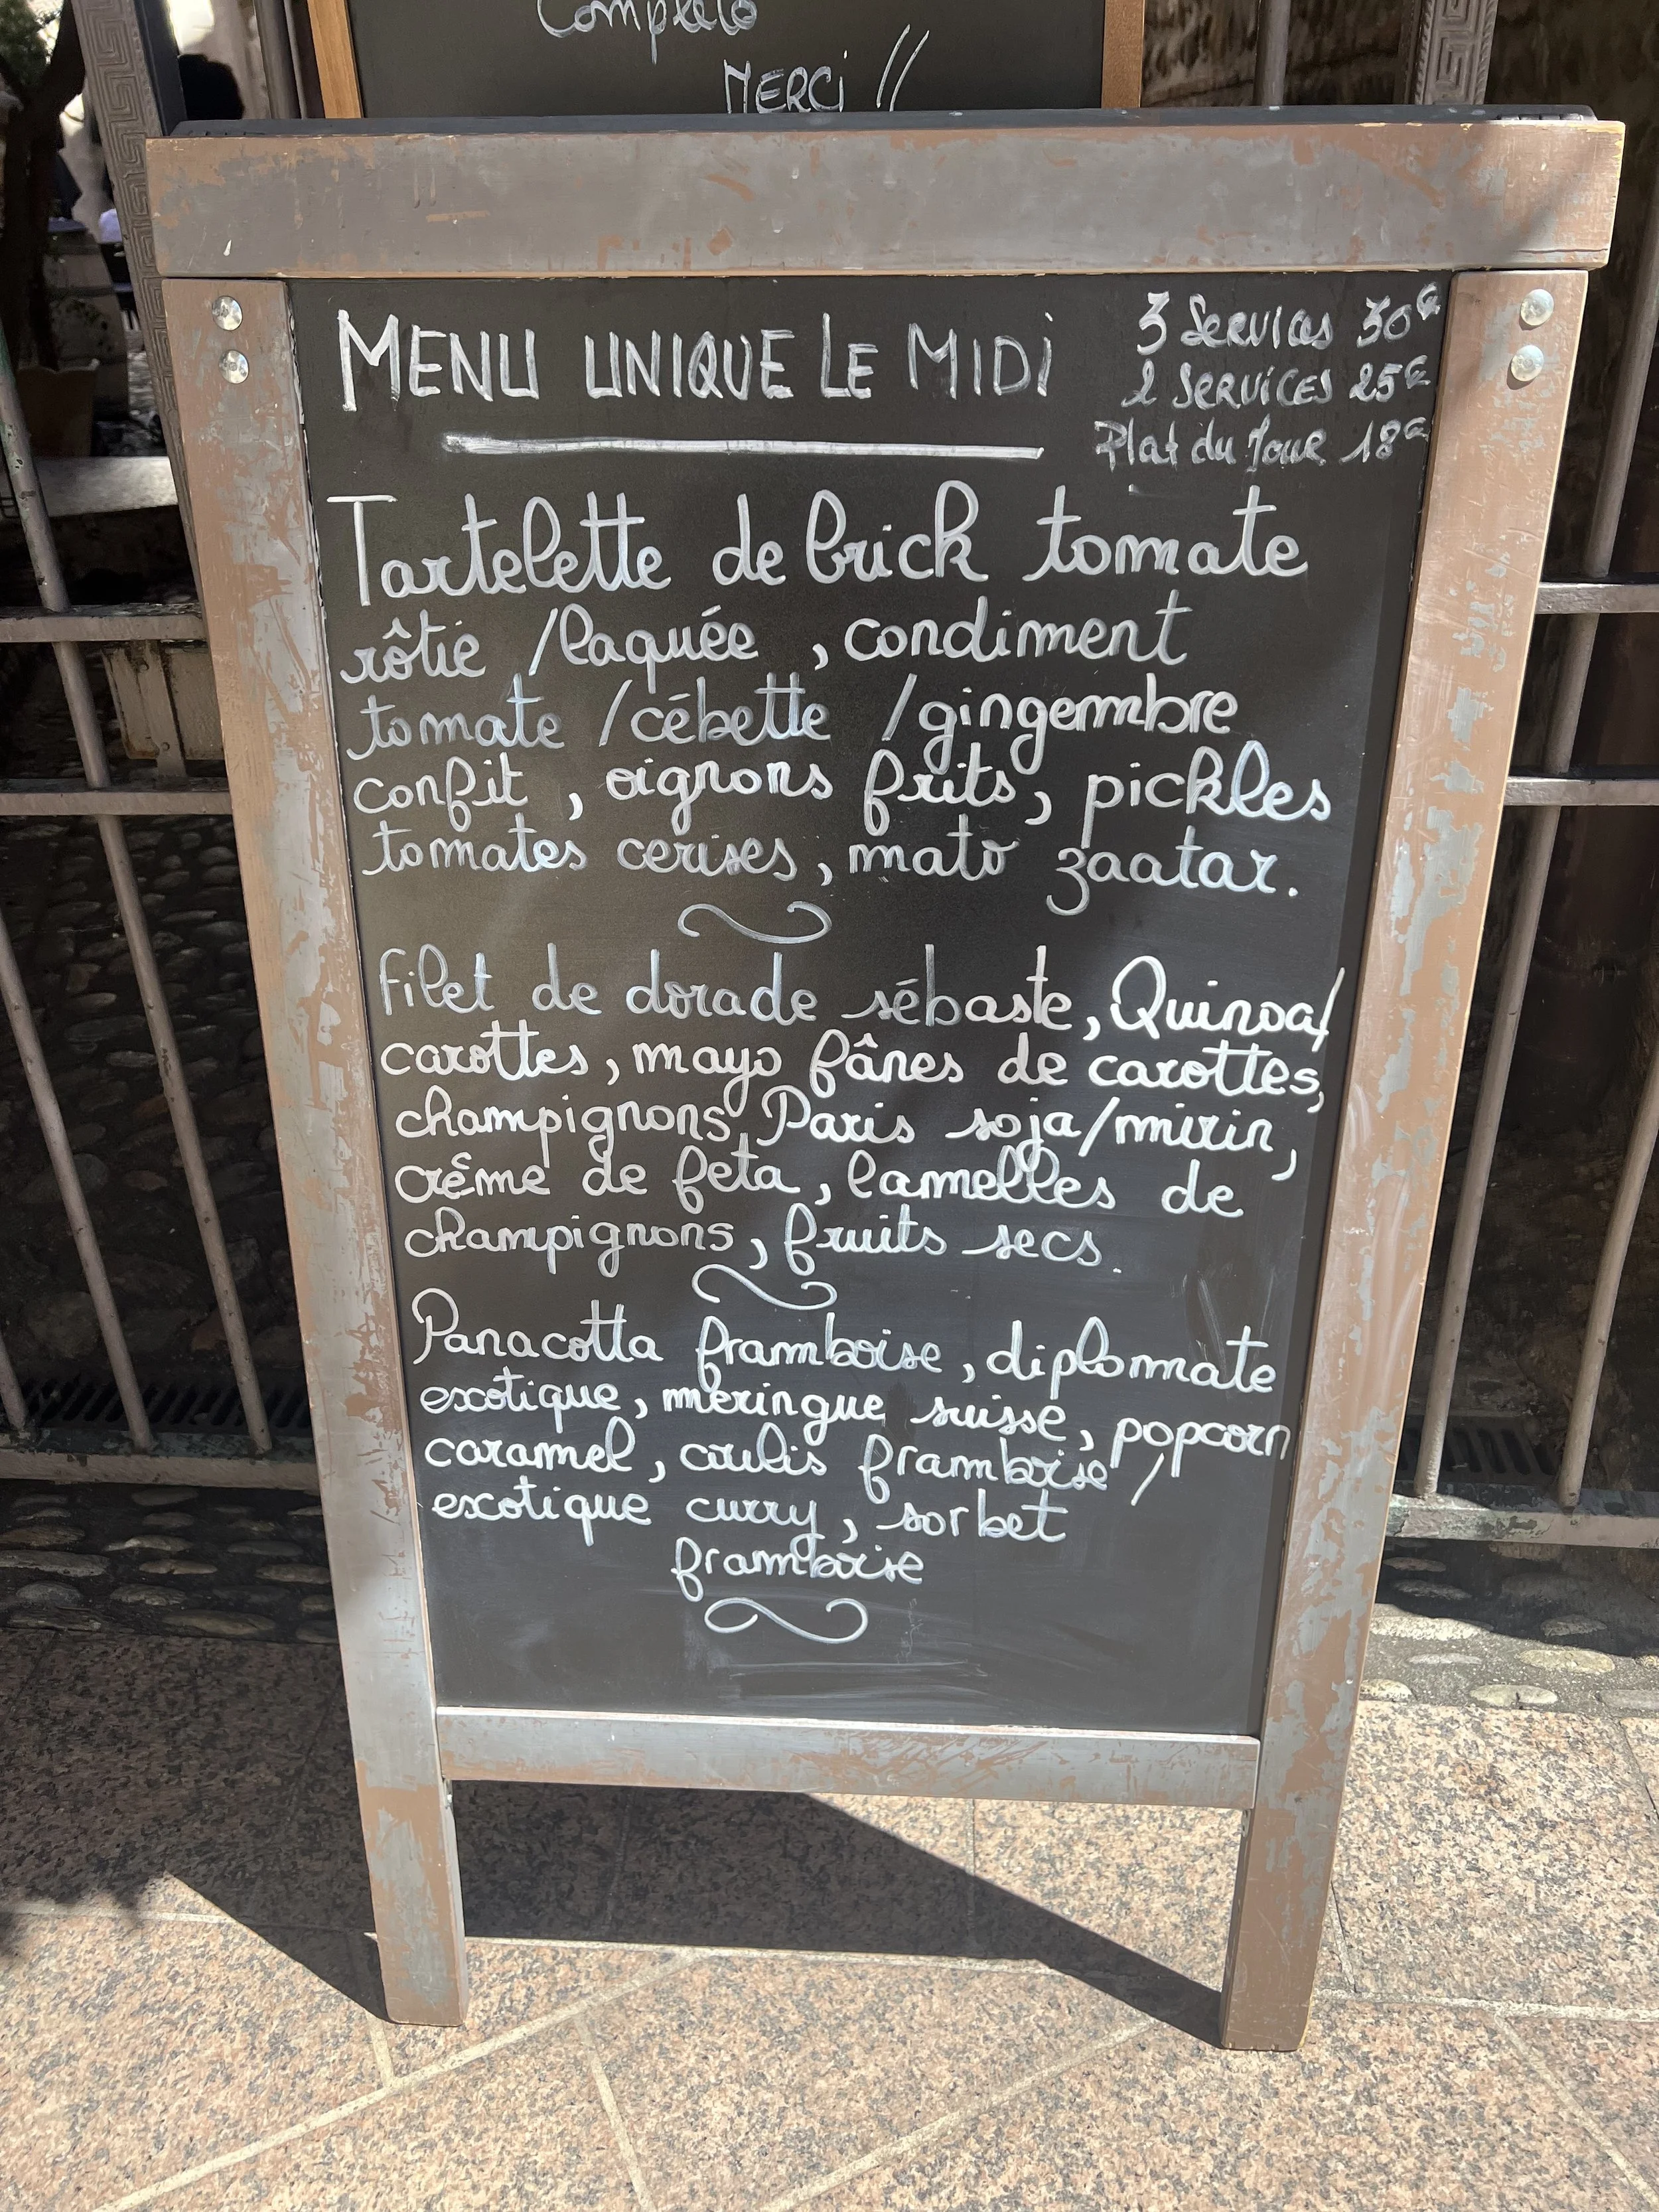 Complet
MERCi !!
MENU UNIQUE LE MIDi
3 Services 30€
2 Services 25€
Plat du Jour 18€
Tartelette de brick tomate
rôtie /laquée , condiment
tomate /cébette /gingembre
confit , oignons frits, pickles
tomates cerises, mato zaatar.
filet de dorade sébaste, Quinoa/
carottes, mayo fânes de carottes,
champignons Paris soja/mirin,
crême de feta, lamelles de
champignons, fruits secs.
Panacotta framboise, diplomate
exotique, meringue suisse, popcorn
caramel, coulis framboise /
exotique curry, sorbet
framboise